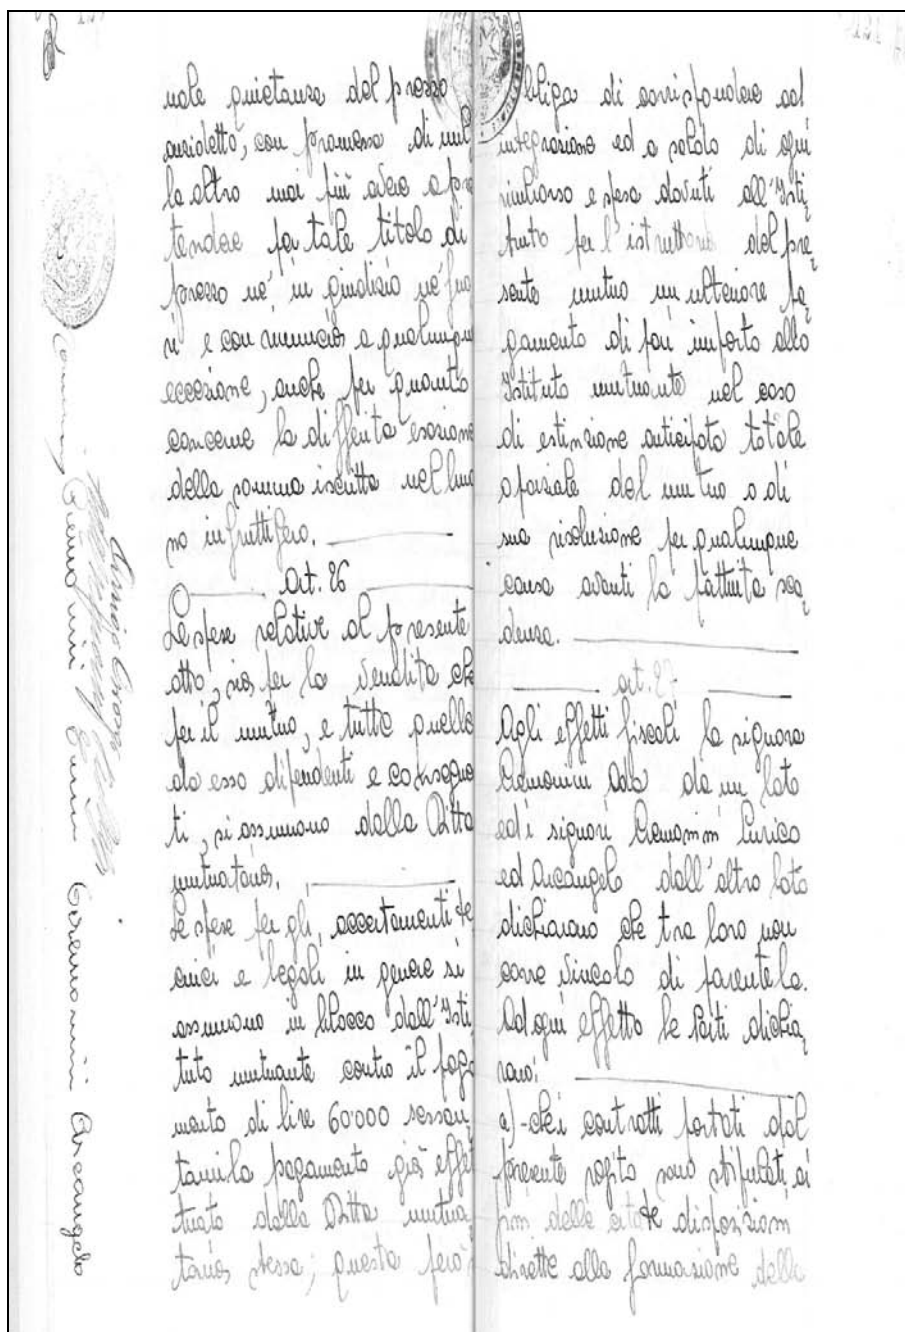 nale quietanza del prezzo
anzidetto, con promessa di nul
la altro mai più avere a pre
tendere per tale titolo di
prezzo nè in giudizio nè fuo
ri e con rinuncia a qualunque
eccezione, anche per quanto
concerne la differita esazione
della somma iscritta nel
no infruttifero.
art. 26
Le spese relative al presente
atto, sia per la vendita che
per il mutuo, e tutte quelle
da esso dipendenti e conseguen
ti, si assumono dalla Ditta
mutuataria.
Le spese per gli accertamenti te
cnici e legali in genere si
assumono in blocco dall'Isti
tuto mutuante contro il paga
mento di lire 60.000 sessan
tamila pagamento già effet
tuato dalla Ditta mutua
taria stessa; questa però si
bliga di corrispondere ad
integrazione ed a saldo di ogni
rimborso e spesa dovuti all'Isti
tuto per l'istruttoria del pre
sente mutuo un ulteriore pa
gamento di pari importo allo
Istituto mutuante nel caso
di estinzione anticipata totale
o parziale del mutuo o di
sua risoluzione per qualunque
causa avanti la pattuita sca
denza.
art. 27
Agli effetti fiscali la signora
Cremonini Ada da un lato
ed i signori Cremonini Enrico
ed Arcangelo dall'altro lato
dichiarano che tra loro non
corre vincolo di parentela.
Ad ogni effetto le Parti dichia
rano:
a)-che i contratti portati dal
presente rogito sono stipulati ai
fini delle citate disposizioni
dirette alla formazione della
Cremonini Arcangelo